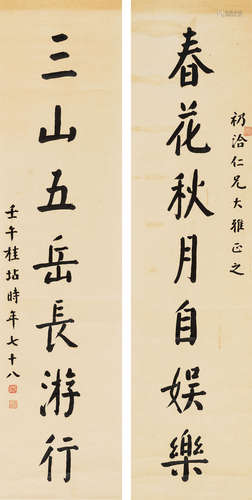 春花秋月自娱樂
初洽仁兄大雅正之
三山五岳長游行
壬午桂坫時年七十八